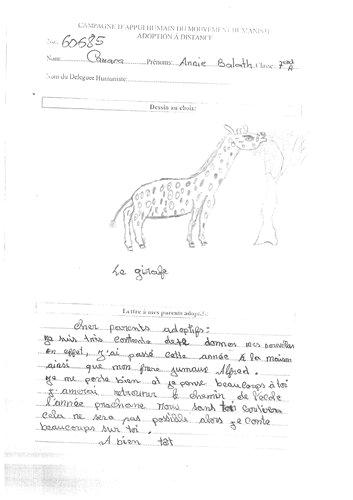 CAMPAGNE D'APPUI HUMAIN DU MOUVEMENT HUMANISTE
ADOPTION A DISTANCE
No: 60685
Nom: Camara Prénoms: Annie Balath Classe: 7
Nom du Délégué Humaniste:
Dessin au choix:
Le girafe
Lettre à mes parents adoptifs:
Cher parents adoptifs:
Je suis très contente de te donner mes nouvelles
en effet, j'ai passé cette année à la maison
ainsi que mon frère jumaux Alfred.
Je me porte bien et je pense beaucoups à toi
J'amerai retrouver le chemin de l'école
l'année prochaine nous sans toi
cela ne sera pas possible alors je conte
beaucoups sur toi.
A bien tôt